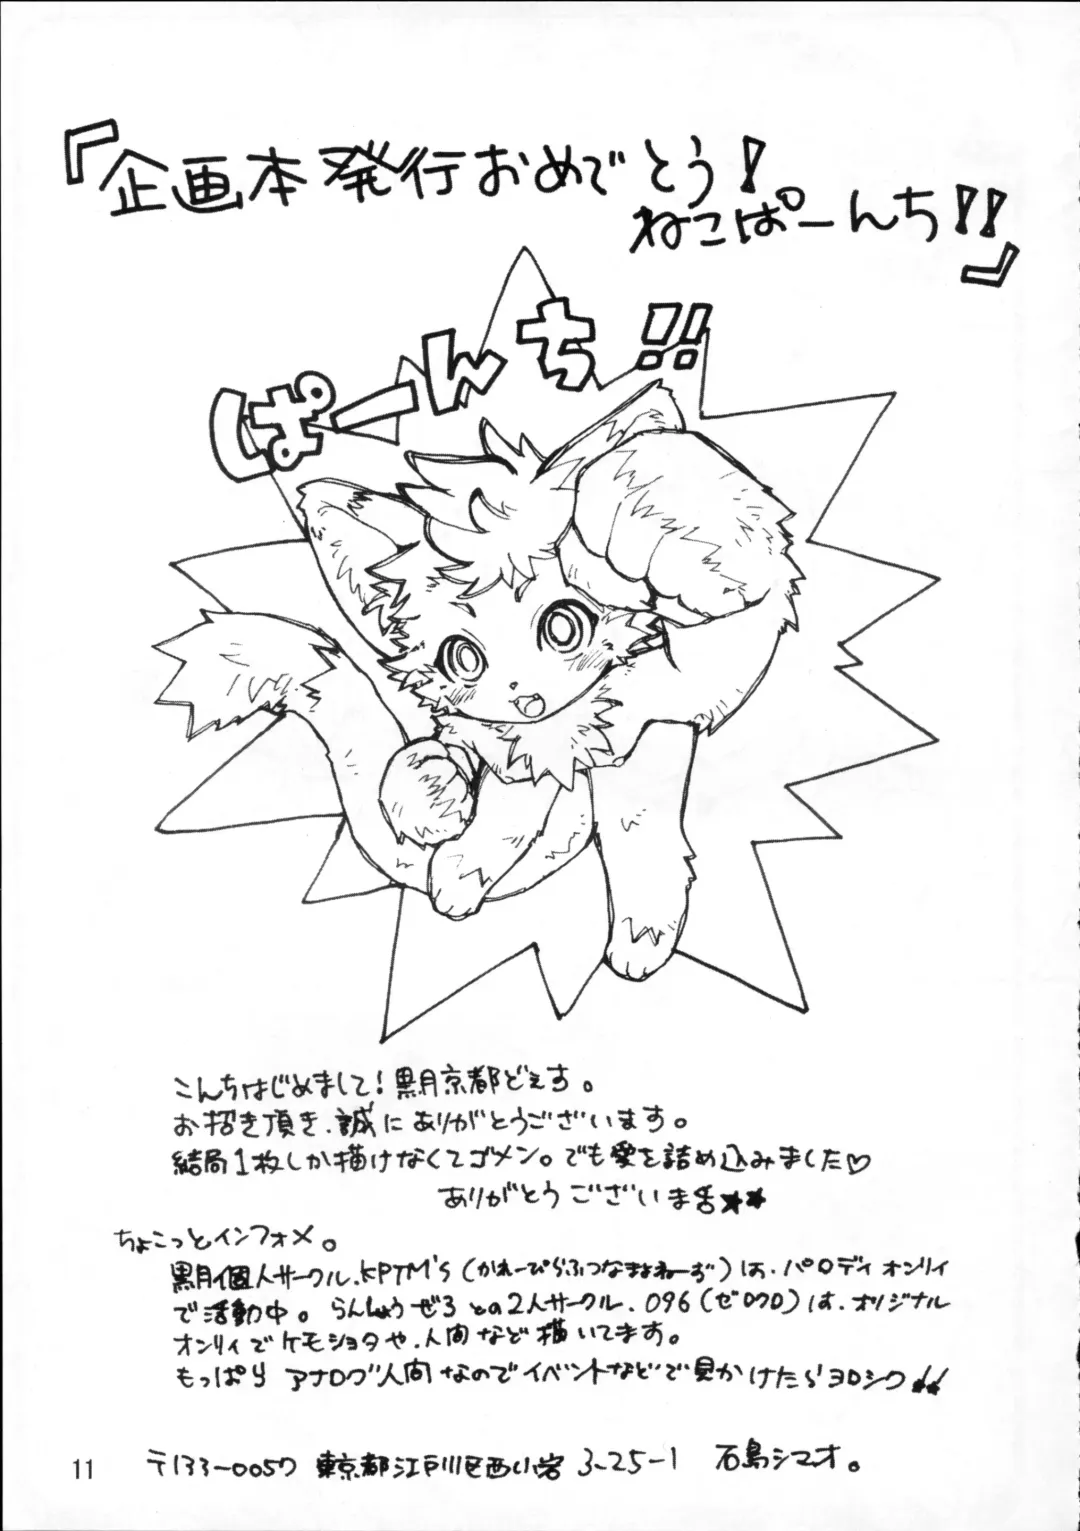 『企画本発行おめでとう!
ねこぱーんち!!』
ぱーんち!!
こんちはじめまして!黒月京都どぇす。
お招き頂き、誠にありがとうございます。
結局1枚しか描けなくてゴメン。でも愛を詰め込みました♡
ありがとうございま舌★★
ちょこっとインフォメ。
黒月個人サークル、KPTM's(かれーぴらふつなまよねーず)は、パロディオンリィ
で活動中。らんしょうぜろとの2人サークル、096(ゼロクロ)は、オリジナル
オンリィでケモショタや、人間など描いてます。
もっぱらアナログ人間なのでイベントなどで見かけたらヨロシク!!
11
〒133-0057 東京都江戸川区西小岩 3-25-1 石島シマオ。